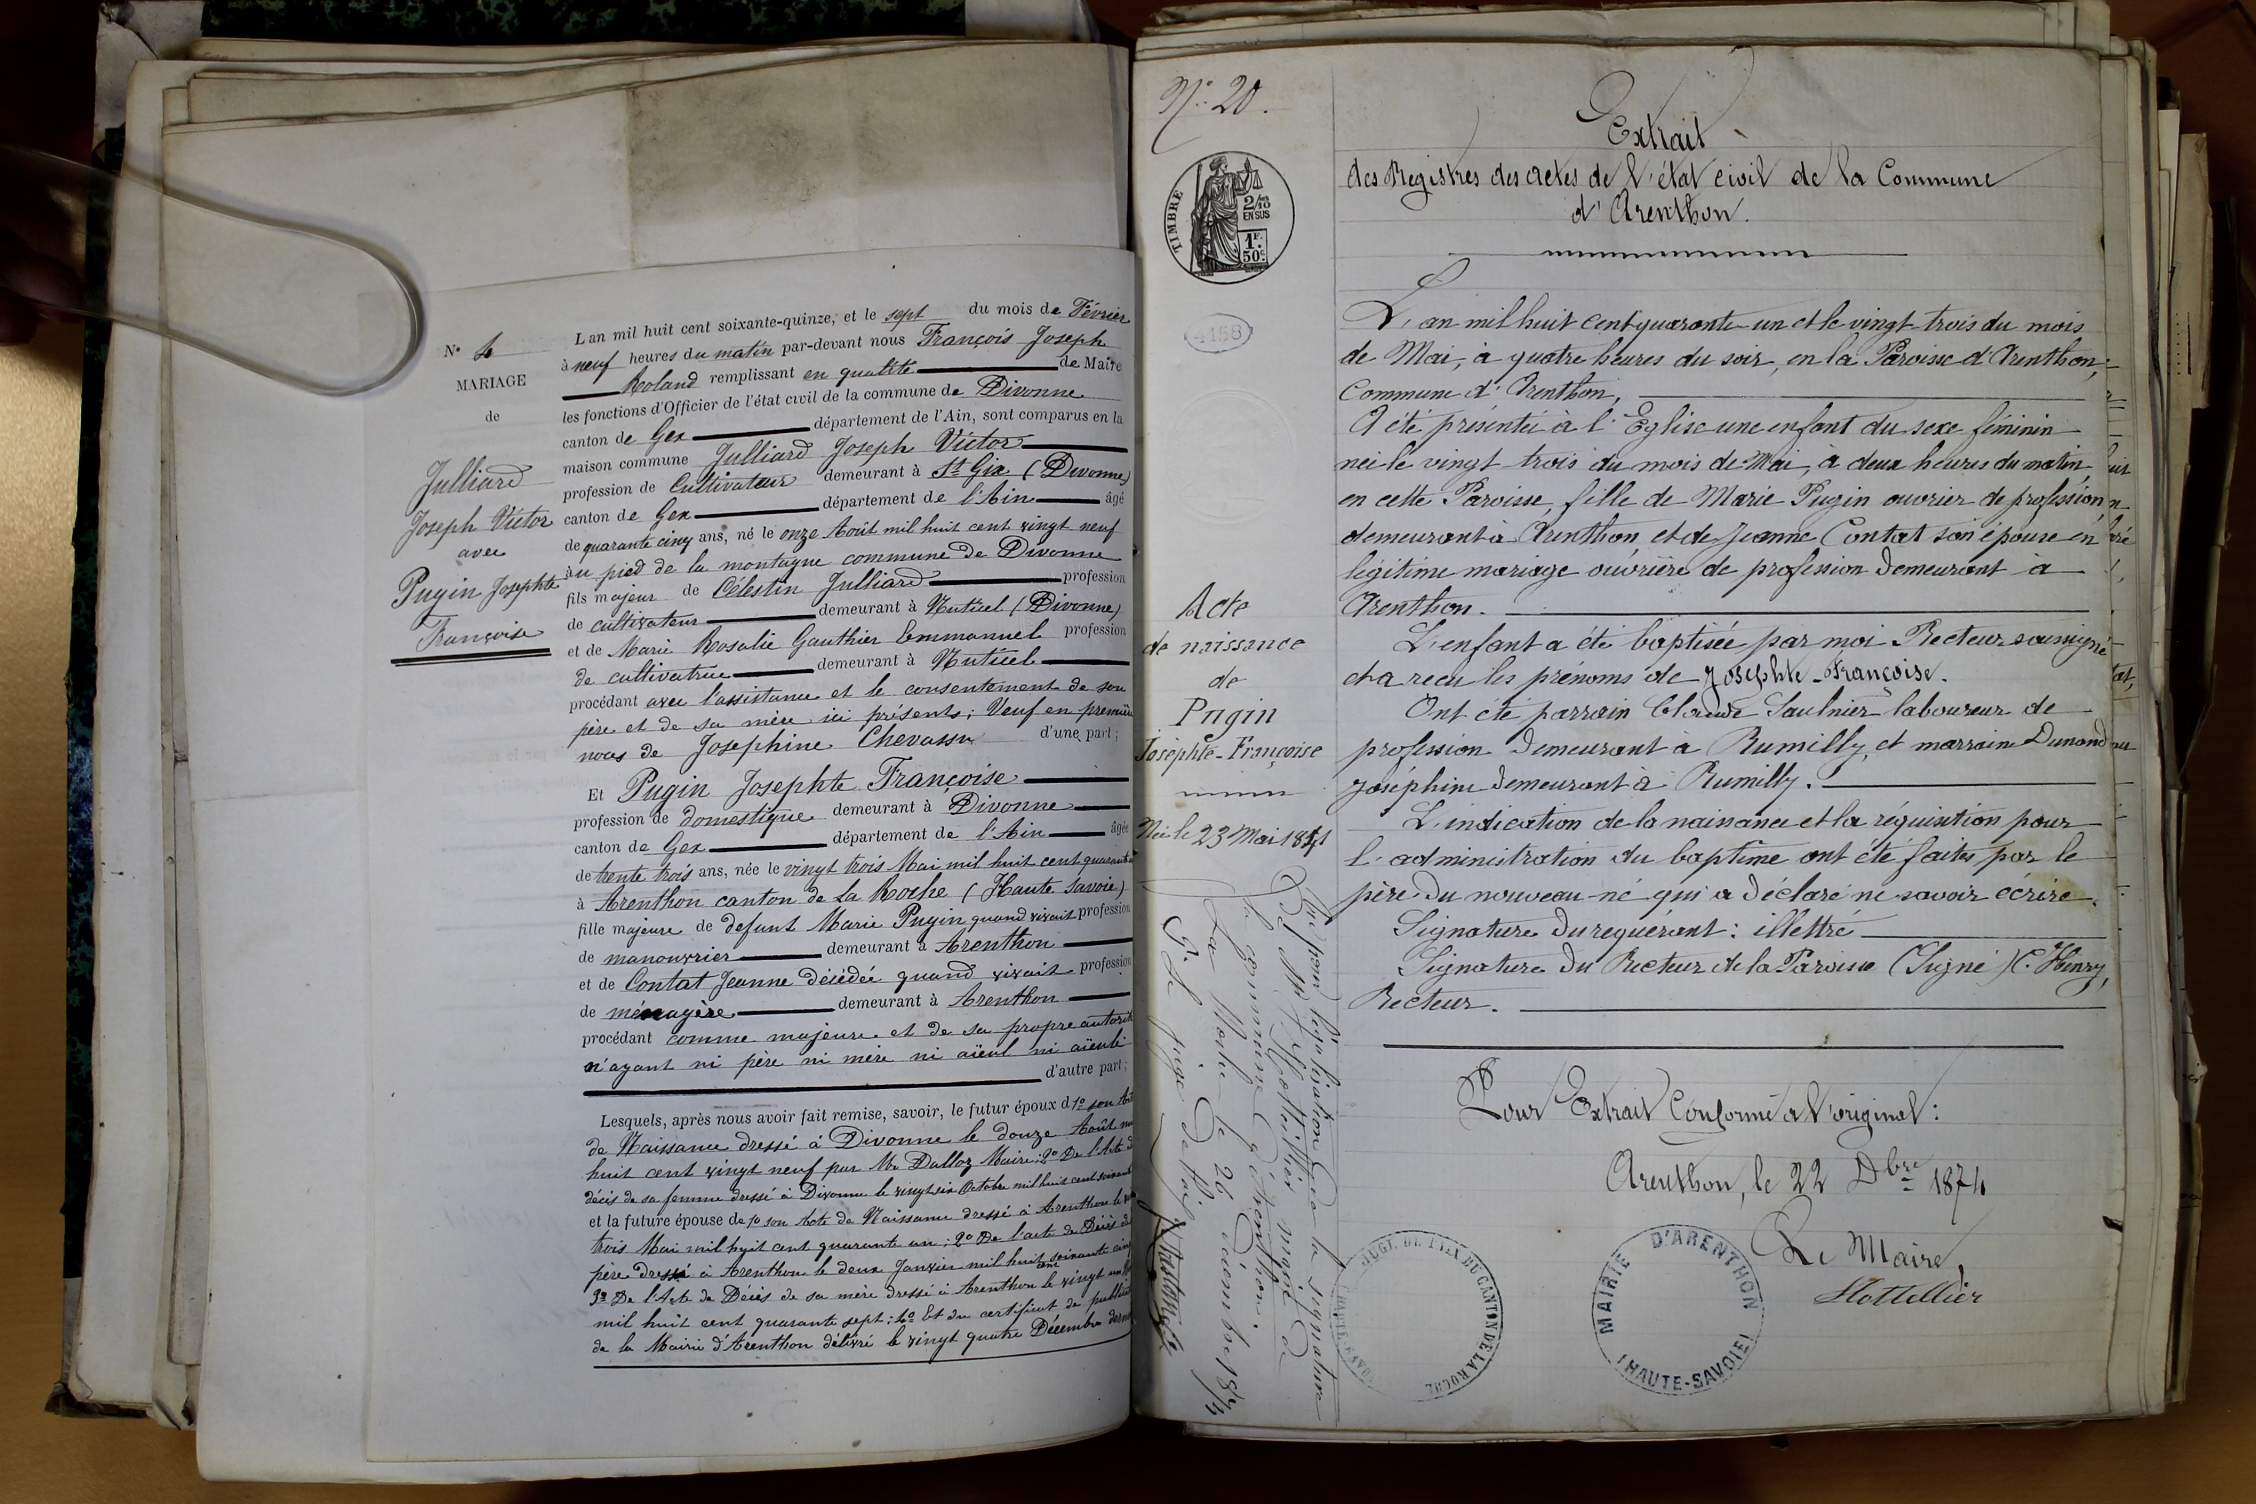 L'an mil huit cent soixante-quinze, et le sept du mois de Février
à neuf heures du matin par-devant nous François Joseph
Roland remplissant en qualité de Maire
les fonctions d'Officier de l'état civil de la commune de Divonne
canton de Gex département de l'Ain, sont comparus en la
maison commune Julliard Joseph Victor
profession de Cultivateur demeurant à St Gix (Divonne)
canton de Gex département de l'Ain âgé
de quarante cinq ans, né le onze Août mil huit cent vingt neuf
au pied de la montagne commune de Divonne
fils majeur de Célestin Julliard profession
de cultivateur demeurant à (Divonne)
et de Marie Rosalie Gauthier Emmanuel profession
de cultivatrice demeurant à
procédant avec l'assistance et le consentement de son
père et de sa mère ici présents; Veuf en première
noces de Josephine Chevassu d'une part;
Et Pugin Josephte Françoise
profession de domestique demeurant à Divonne
canton de Gex département de l'Ain âgée
de trente trois ans, née le vingt trois Mai mil huit cent quarante
à Arenthon canton de La Roche (Haute Savoie)
fille majeure de defunt Marie Pugin quand vivait profession
de manouvrier demeurant à Arenthon
et de Contat Jeanne décédée quand vivait profession
de ménagère demeurant à Arenthon
procédant comme majeure et de sa propre autorité
n'ayant ni père ni mère ni aïeul ni aïeule
d'autre part;
Lesquels, après nous avoir fait remise, savoir, le futur époux d 1º son
de Naissance dressé à Divonne le douze Août
huit cent vingt neuf par Mr Dalloz Maire; 2º De l'Acte d
décès de sa femme dressé à Divonne le vingt six Octobre mil huit cent
et la future épouse de 1º son Acte de Naissance dressé à Arenthon le
trois Mai mil huit cent quarante un; 2º De l'acte de Décès de
père dressé à Arenthon le deux Janvier mil huit cent soixante cinq
3º De l'Acte de Décès de sa mère dressé à Arenthon le vingt
mil huit cent quarante sept; 4º Et du certificat de
de la Mairie d'Arenthon délivré le vingt quatre Décembre
Nº 4
MARIAGE
de
Julliard
Joseph Victor
avec
Pugin Josephte
Françoise
Nº 20.
TIMBRE
2/10
EN SUS
1F.
50c
4158
Extrait
des Registres des actes de l'état civil de la Commune
d'Arenthon.
L'an mil huit cent quarante-un et le vingt-trois du mois
de Mai, à quatre heures du soir, en la Paroisse d'Arenthon,
Commune d'Arenthon,
A été présentée à l'Eglise une enfant du sexe féminin
née le vingt-trois du mois de Mai, à deux heures du matin,
en cette Paroisse, fille de Marie Pugin ouvrier de profession,
demeurant à Arenthon et de Jeanne Contat son épouse en
légitime mariage ouvrière de profession demeurant à
Arenthon.
L'enfant a été baptisée par moi Recteur soussigné
et a reçu les prénoms de Josephte-Françoise.
Ont été parrain Claude Saulnier laboureur de
profession demeurant à Rumilly, et marraine Dunand
Joséphine demeurant à Rumilly.
L'indication de la naissance et la réquisition pour
l'administration du baptême ont été faites par le
père du nouveau-né qui a déclaré ne savoir écrire.
Signature du requérant: illettré
Signature du Recteur de la Paroisse (Signé) C. Henry,
Recteur.
Pour Extrait Conforme à l'original:
Arenthon, le 22 Dbre 1874
Le Maire,
Hottellier
MAIRIE D'ARENTHON
(HAUTE-SAVOIE)
JUGE DE PAIX DU CANTON DE LA ROCHE
Acte
de naissance
de
Pugin
Joséphte-Françoise
Née le 23 Mai 1841
Vu pour légalisation de la signature
de Mr Hottellier maire de
la commune d'Arenthon.
La Roche le 26 décembre 1874
Le juge de Paix